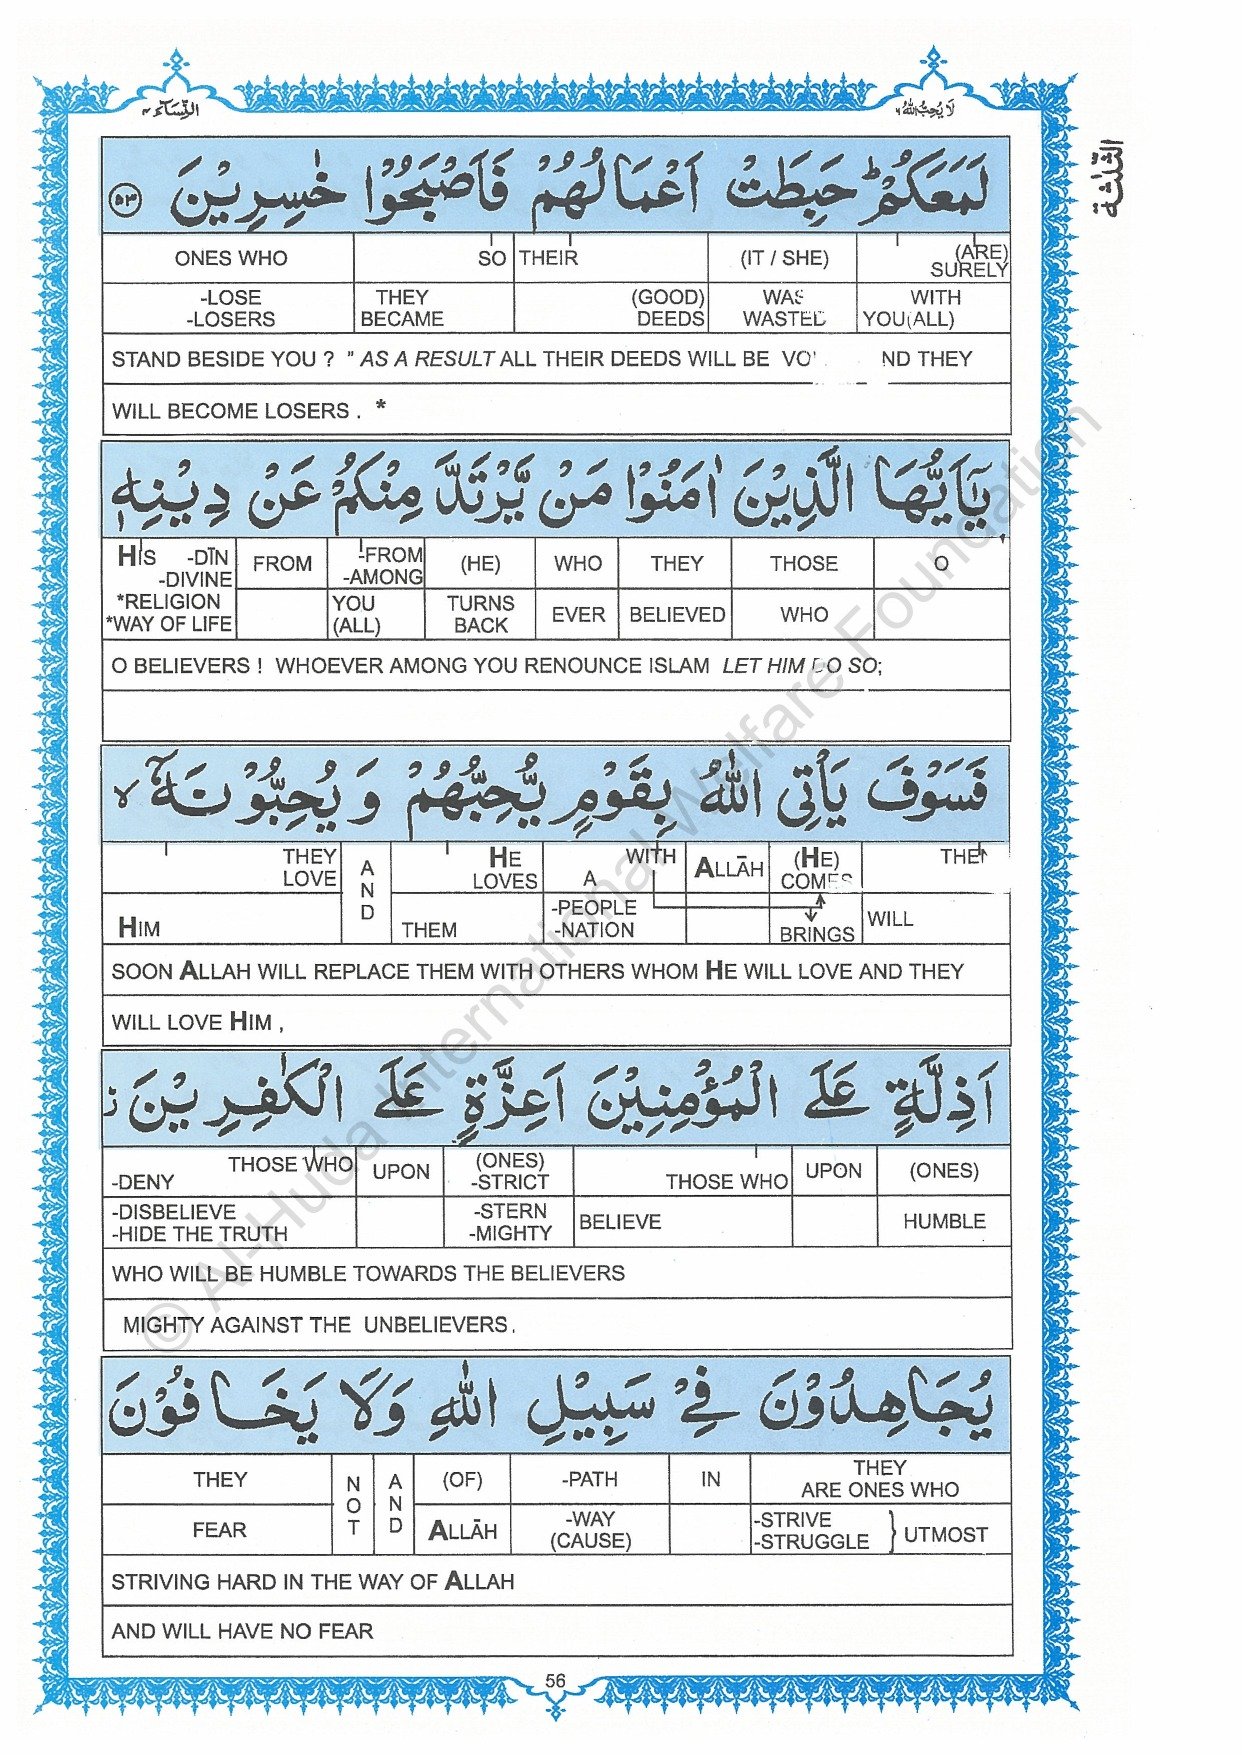 النِّسَآء ٤
لَا يُحِبُّ اللّٰهُ ٦
الثلثة
لَمَعَكُمْ ؕ حَبِطَتْ اَعْمَالُهُمْ فَاَصْبَحُوْا خٰسِرِيْنَ ﴿٥٣﴾
ONES WHO SO THEIR (IT / SHE) (ARE) SURELY
-LOSE THEY (GOOD) WAS WITH
-LOSERS BECAME DEEDS WASTED YOU(ALL)
STAND BESIDE YOU ? " AS A RESULT ALL THEIR DEEDS WILL BE VO ND THEY
WILL BECOME LOSERS . *
يٰۤاَيُّهَا الَّذِيْنَ اٰمَنُوْا مَنْ يَّرْتَدَّ مِنْكُمْ عَنْ دِيْنِهٖ
HIS -DĪN FROM -FROM (HE) WHO THEY THOSE O
-DIVINE -AMONG
*RELIGION YOU TURNS EVER BELIEVED WHO
*WAY OF LIFE (ALL) BACK
O BELIEVERS ! WHOEVER AMONG YOU RENOUNCE ISLAM LET HIM DO SO;
فَسَوْفَ يَأْتِى اللّٰهُ بِقَوْمٍ يُّحِبُّهُمْ وَ يُحِبُّوْنَهٗۤ ۙ
THEY AND HE WITH ALLĀH (HE) THEN
LOVE LOVES A COMES
HIM THEM -PEOPLE WILL
-NATION BRINGS
SOON ALLAH WILL REPLACE THEM WITH OTHERS WHOM HE WILL LOVE AND THEY
WILL LOVE HIM ,
اَذِلَّةٍ عَلَى الْمُؤْمِنِيْنَ اَعِزَّةٍ عَلَى الْكٰفِرِيْنَ ز
THOSE WHO UPON (ONES) THOSE WHO UPON (ONES)
-DENY -STRICT
-DISBELIEVE -STERN BELIEVE HUMBLE
-HIDE THE TRUTH -MIGHTY
WHO WILL BE HUMBLE TOWARDS THE BELIEVERS
MIGHTY AGAINST THE UNBELIEVERS,
يُجَاهِدُوْنَ فِىْ سَبِيْلِ اللّٰهِ وَلَا يَخَافُوْنَ
THEY NOT AND (OF) -PATH IN THEY
ARE ONES WHO
FEAR ALLĀH -WAY -STRIVE } UTMOST
(CAUSE) -STRUGGLE
STRIVING HARD IN THE WAY OF ALLAH
AND WILL HAVE NO FEAR
56
© Al-Huda International Welfare Foundation